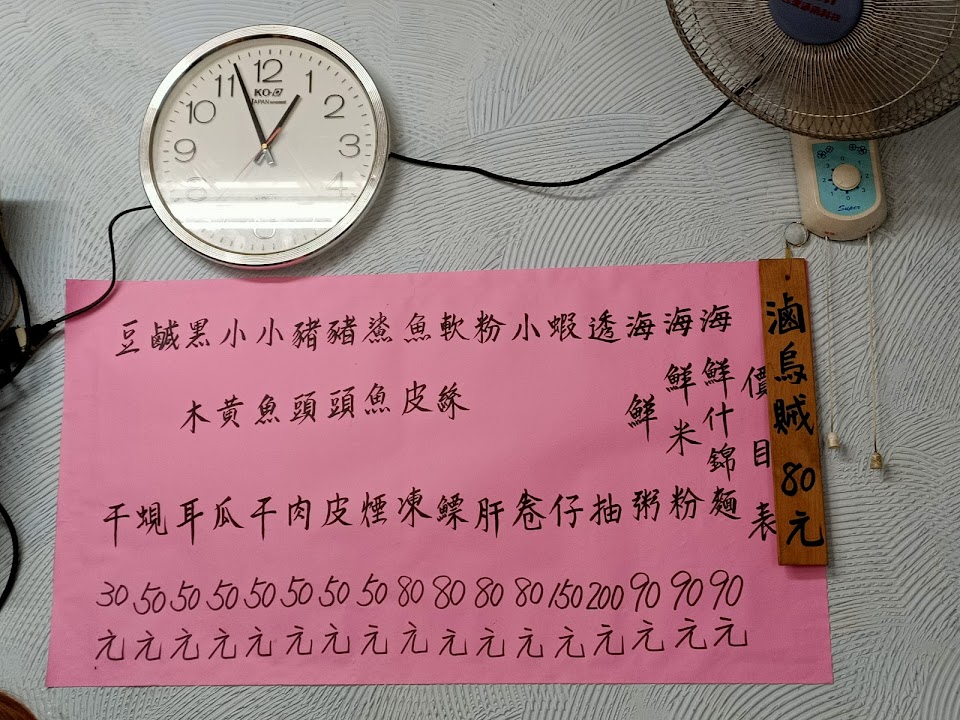 滷烏賊 80元
價目表
海鮮什錦麵 90元
海鮮米粉 90元
海鮮粥 90元
透抽 200元
蝦仔 150元
小卷 80元
粉肝 80元
軟絲鰾 80元
魚皮凍 80元
鯊魚煙 50元
豬頭皮 50元
豬頭肉 50元
小魚干 50元
小黃瓜 50元
黑木耳 50元
鹹蜆 50元
豆干 30元
12
11
1
10
2
9
3
4
JAPAN
Super